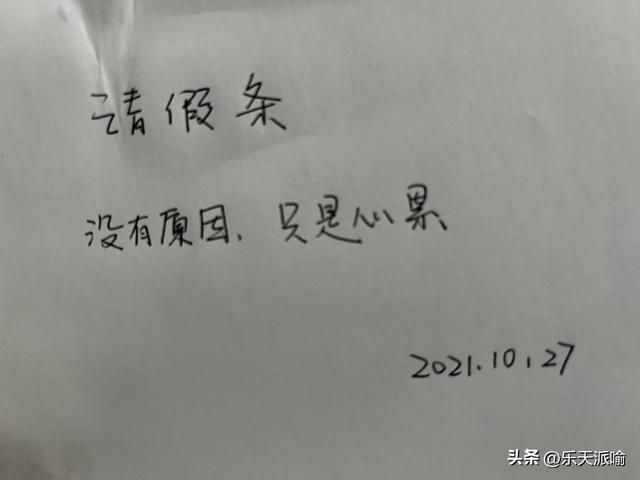 请假条
没有原因、只是心累
2021.10.27
头条 @乐天派喻